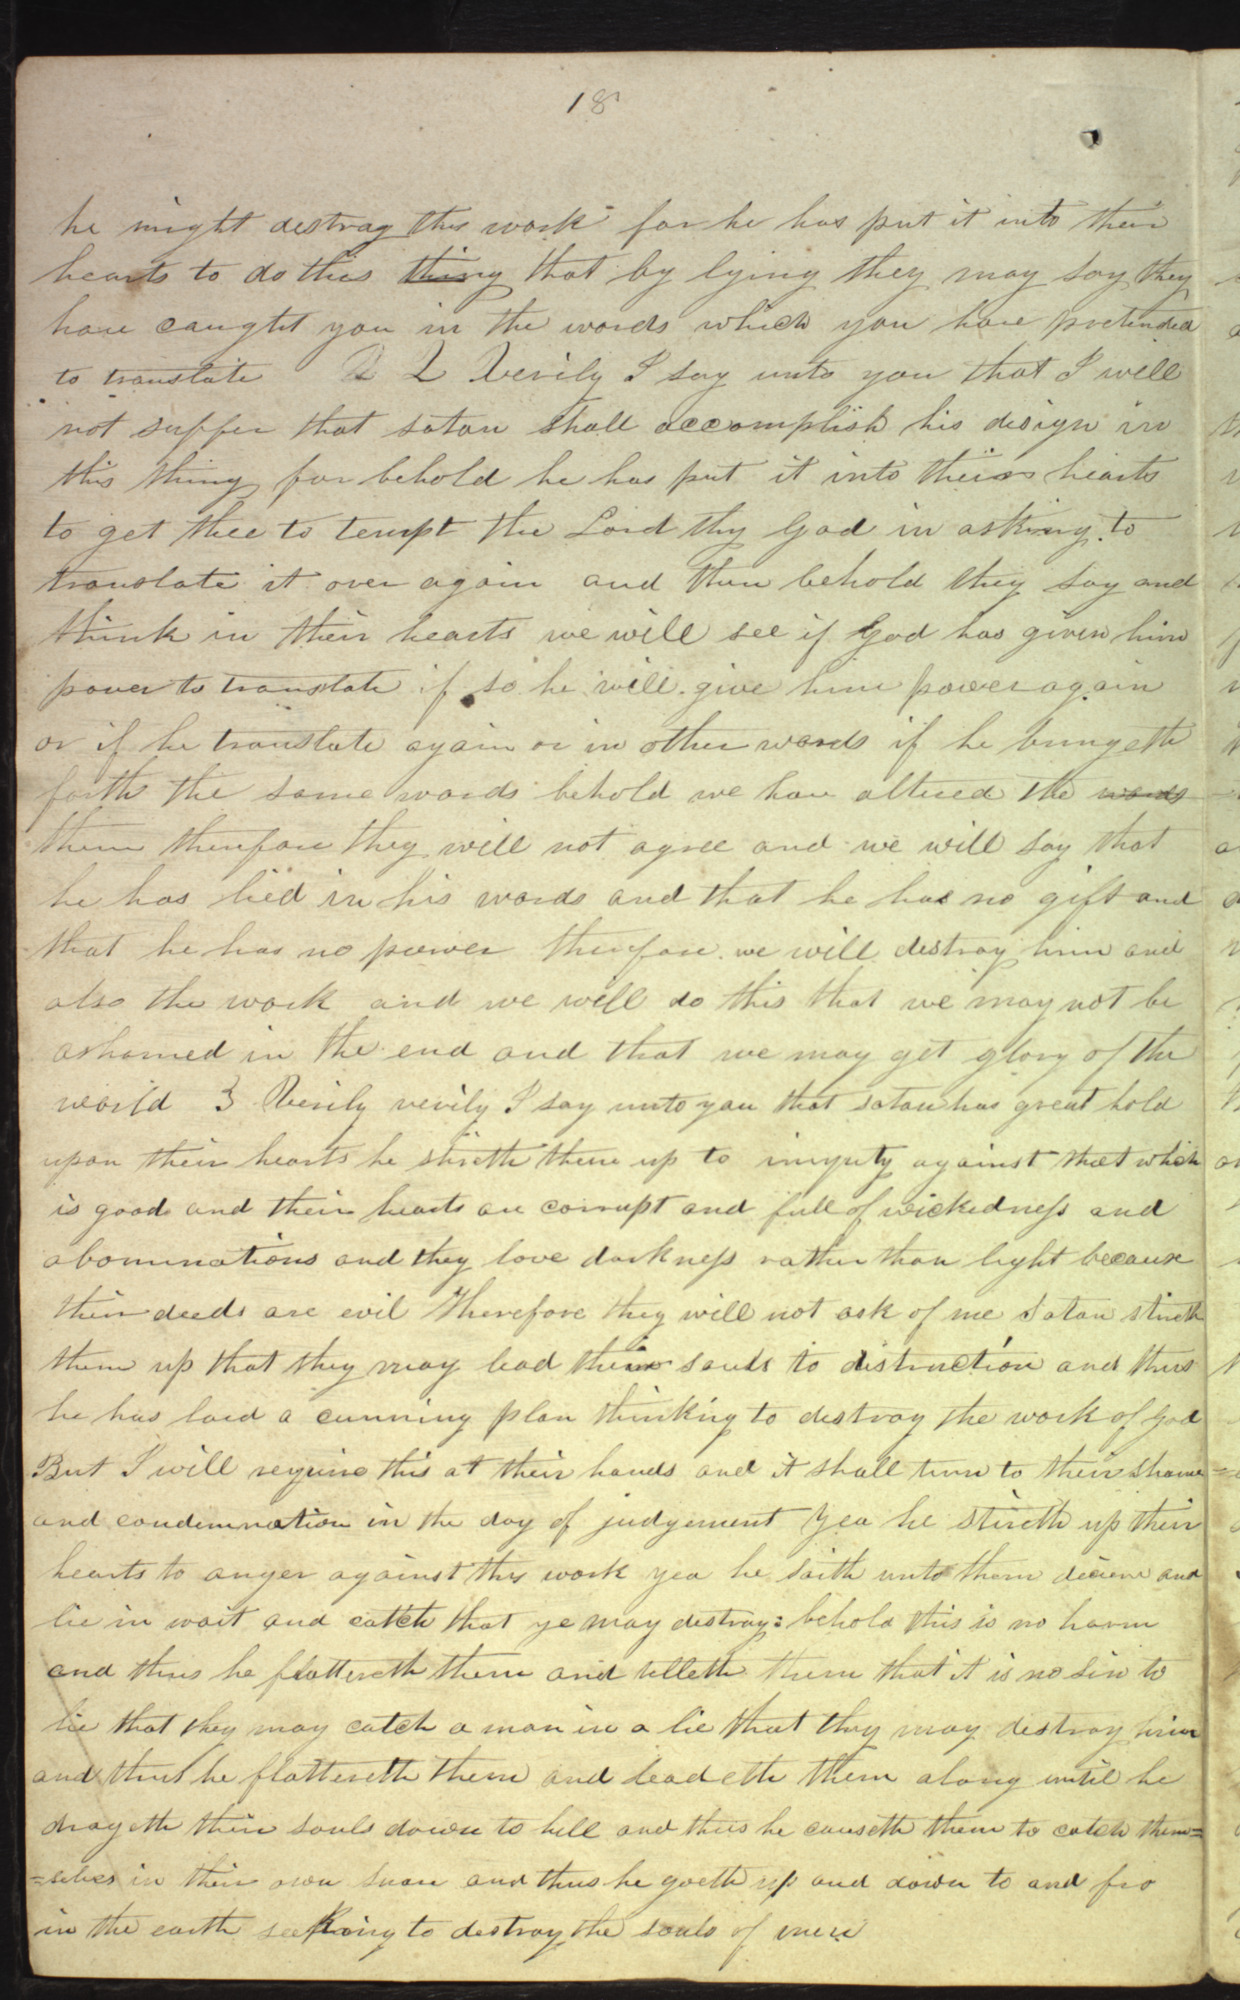 18
he might destroy this work for he has put it into their
hearts to do this thing that by lying they may say they
have caught you in the words which you have pretended
to translate 2 2 Verily I say unto you that I will
not suffer that satan shall accomplish his disign in
this thing for behold he has put it into their hearts
to get thee to tempt the Lord thy God in asking to
translate it over again and then behold they say and
think in their hearts we will see if God has given him
power to translate if so he will give him power again
or if he translate again or in other words if he bringeth
forth the same words behold we have altered the words
them therefore they will not agree and we will say that
he has lied in his words and that he has no gift and
that he has no power therefore we will destroy him and
also the work and we will do this that we may not be
ashamed in the end and that we may get glory of the
world 3 Verily verily I say unto you that satan has great hold
upon their hearts he stireth them up to iniquty against that which
is good and their hearts are corrupt and full of wickedness and
abominations and they love darkness rather than light because
their deeds are evil Therefore they will not ask of me Satan stireth
them up that they may lead their souls to distruction and thus
he has laid a cunning plan thinking to destroy the work of God
But I will require this at their hands and it shall turn to their shame
and condemnation in the day of judgement Yea he stireth up their
hearts to anger against this work yea he saith unto them decieve and
lie in wait and catch that ye may destroy: behold this is no harm
and thus he flattereth them and telleth them that it is no sin to
lie that they may catch a man in a lie that they may destroy him
and thus he flattereth them and leadeth them along until he
drageth their souls down to hell and thus he causeth them to catch them=
=selves in their own snare and thus he goeth up and down to and fro
in the earth seeking to destroy the souls of men